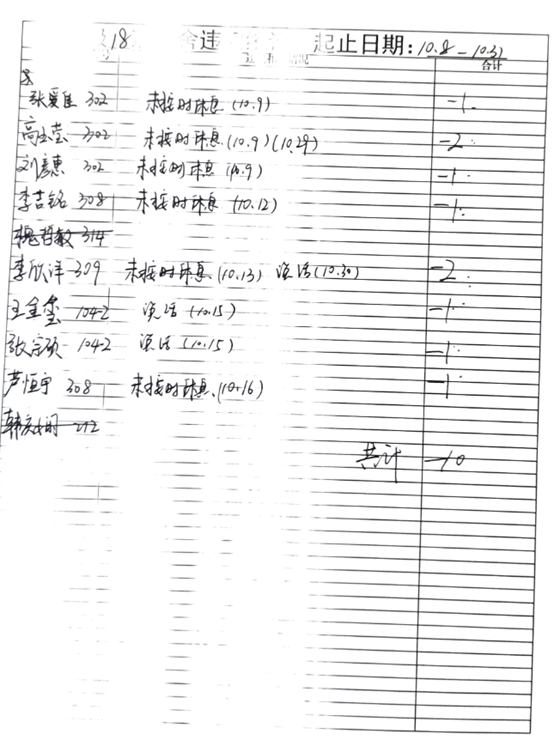 318 舍违 起止日期: 10.8-10.31
合计
张爱佳 302 未按时休息(10.9) -1
高玉莹 302 未按时休息(10.9)(10.29) -2
刘彦惠 302 未按时休息(10.9) -1
李吉铭 308 未按时休息(10.12) -1
魏哲敏 314
李欣洋 309 未按时休息(10.13) 说话(10.30) -2
王金玺 104-2 说话(10.15) -1
张宗硕 104-2 说话(10.15) -1
芦恒宇 308 未按时休息(10.16) -1
韩 212
共计 -10